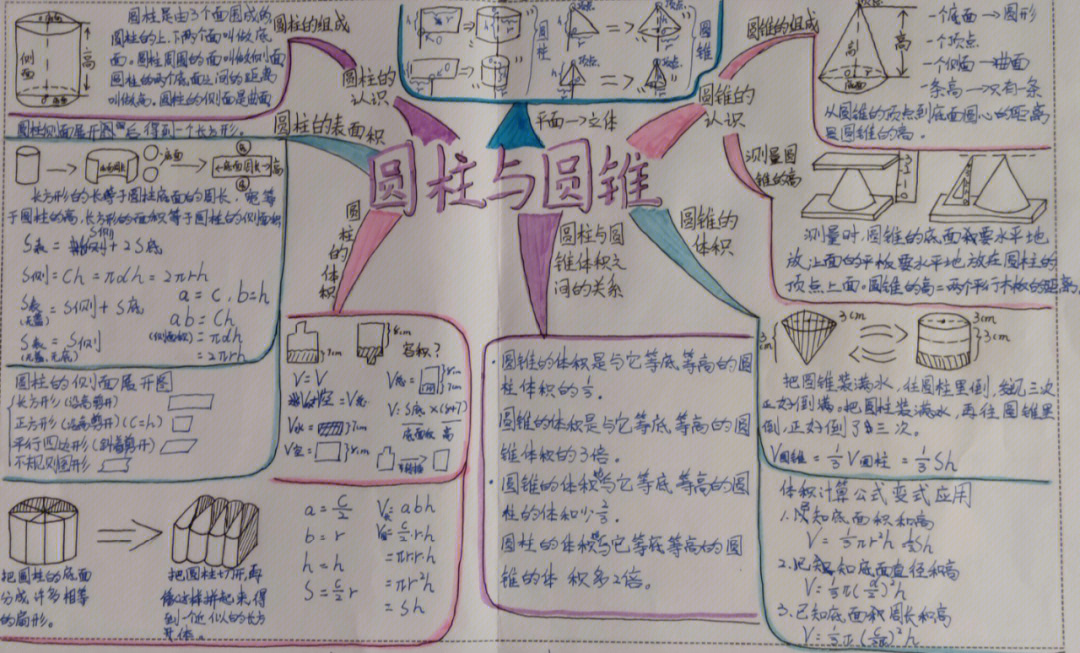 圆柱与圆锥
圆柱的组成
圆柱的认识
圆柱是由3个面围成的
圆柱的上、下两个面叫做底
面。圆柱周围的面叫做侧面
圆柱的两个底面之间的距离
叫做高。圆柱的侧面是曲面
底面
侧面
高
底面
圆柱侧面展开图后,得到一个长方形。
圆柱的表面积
底面
底面周长
高
长方形的长等于圆柱底面的周长,宽等
于圆柱的高,长方形的面积等于圆柱的侧面积
S表 = S侧 + 2S底
S侧 = Ch = πdh = 2πrh
S表 = S侧 + S底
(无盖)
a = C, b = h
ab = Ch
S表 = S侧
(无盖,无底)
(侧面积) = πdh
= 2πrh
圆柱的侧面展开图
长方形(沿高剪开)
正方形(沿高剪开)(C=h)
平行四边形(斜着剪开)
不规则图形
圆柱的体积
7cm
18cm
容积?
V=V
V水+V空=V瓶
V水=
7cm
V空=
18cm
V瓶=
18cm
7cm
V=S底×(18+7)
底面积 高
把圆柱的底面
分成许多相等
的扇形。
把圆柱切开,再
像这样拼起来,得
到一个近似的长方
体。
a = C/2
b = r
h = h
S = C/2 r
V = abh
V = C/2·r·h
= πr·r·h
= πr²h
= Sh
平面→立体
圆柱
圆锥
圆柱与圆
锥体积之
间的关系
·圆锥的体积是与它等底等高的圆
柱体积的1/3。
圆锥的体积是与它等底等高的圆
锥体积的3倍。
·圆锥的体积与它等底等高的圆
柱的体积少2/3.
圆柱的体积与它等底等高的圆
锥的体积多2倍。
圆锥的组成
圆锥的认识
顶点
侧面
高
底面
一个底面→圆形
一个顶点
一个侧面→曲面
一条高→只有一条
从圆锥的顶点到底面圆心的距离
是圆锥的高.
测量圆
锥的高
测量时,圆锥的底面要水平地
放,上面的平板要水平地放在圆柱的
顶点上面。圆锥的高=两个平行木板的距离
圆锥的
体积
3cm
3cm
3cm
3cm
把圆锥装满水,往圆柱里倒,发现三次
正好倒满。把圆柱装满水,再往圆锥里
倒,正好倒了三次。
V圆锥 = 1/3 V圆柱 = 1/3 Sh
体积计算公式变式应用
1.已知底面积和高
V = 1/3πr²h 1/3Sh
2.已知底面直径和高
V = 1/3π(d/2)²h
3.已知底面积周长和高
V = 1/3π(C/2π)²h